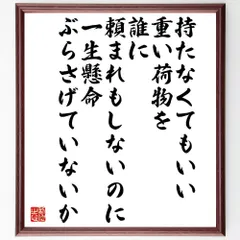 持たなくてもいい
重い荷物を
誰に
頼まれもしないのに
一生懸命
ぶらさげていないか